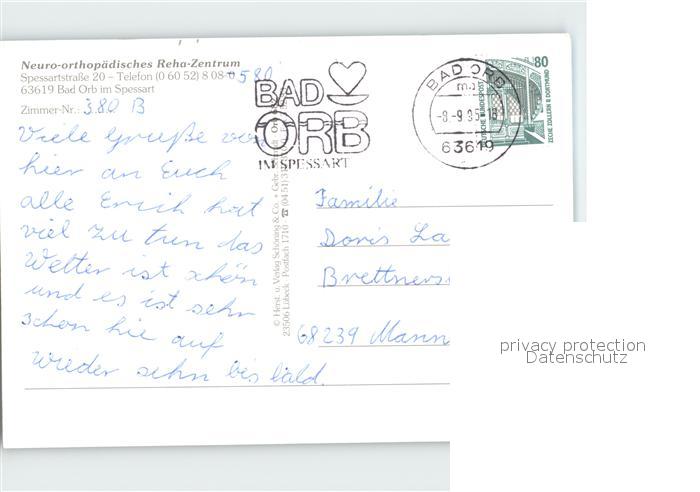 Neuro-orthopädisches Reha-Zentrum
Spessartstraße 20 – Telefon (0 60 52) 8 08-0 580
63619 Bad Orb im Spessart
Zimmer-Nr.: 380 B
Viele Grüße von
hier an Euch
alle Erich hat
viel zu tun das
Wetter ist schön
und es ist sehr
schön hie auf
wieder sehn bis bald.
BAD
ORB
IM SPESSART
BAD ORB
-8.-9.95-18
63619
80
DEUTSCHE BUNDESPOST
ZECHE ZOLLERN II DORTMUND
© Herst. u. Verlag Schöning & Co. + Gebr.
23506 Lübeck Postfach 1710 ☎ (04 51) 3
Familie
Doris La
Brettners
68239 Mann
privacy protection
Datenschutz